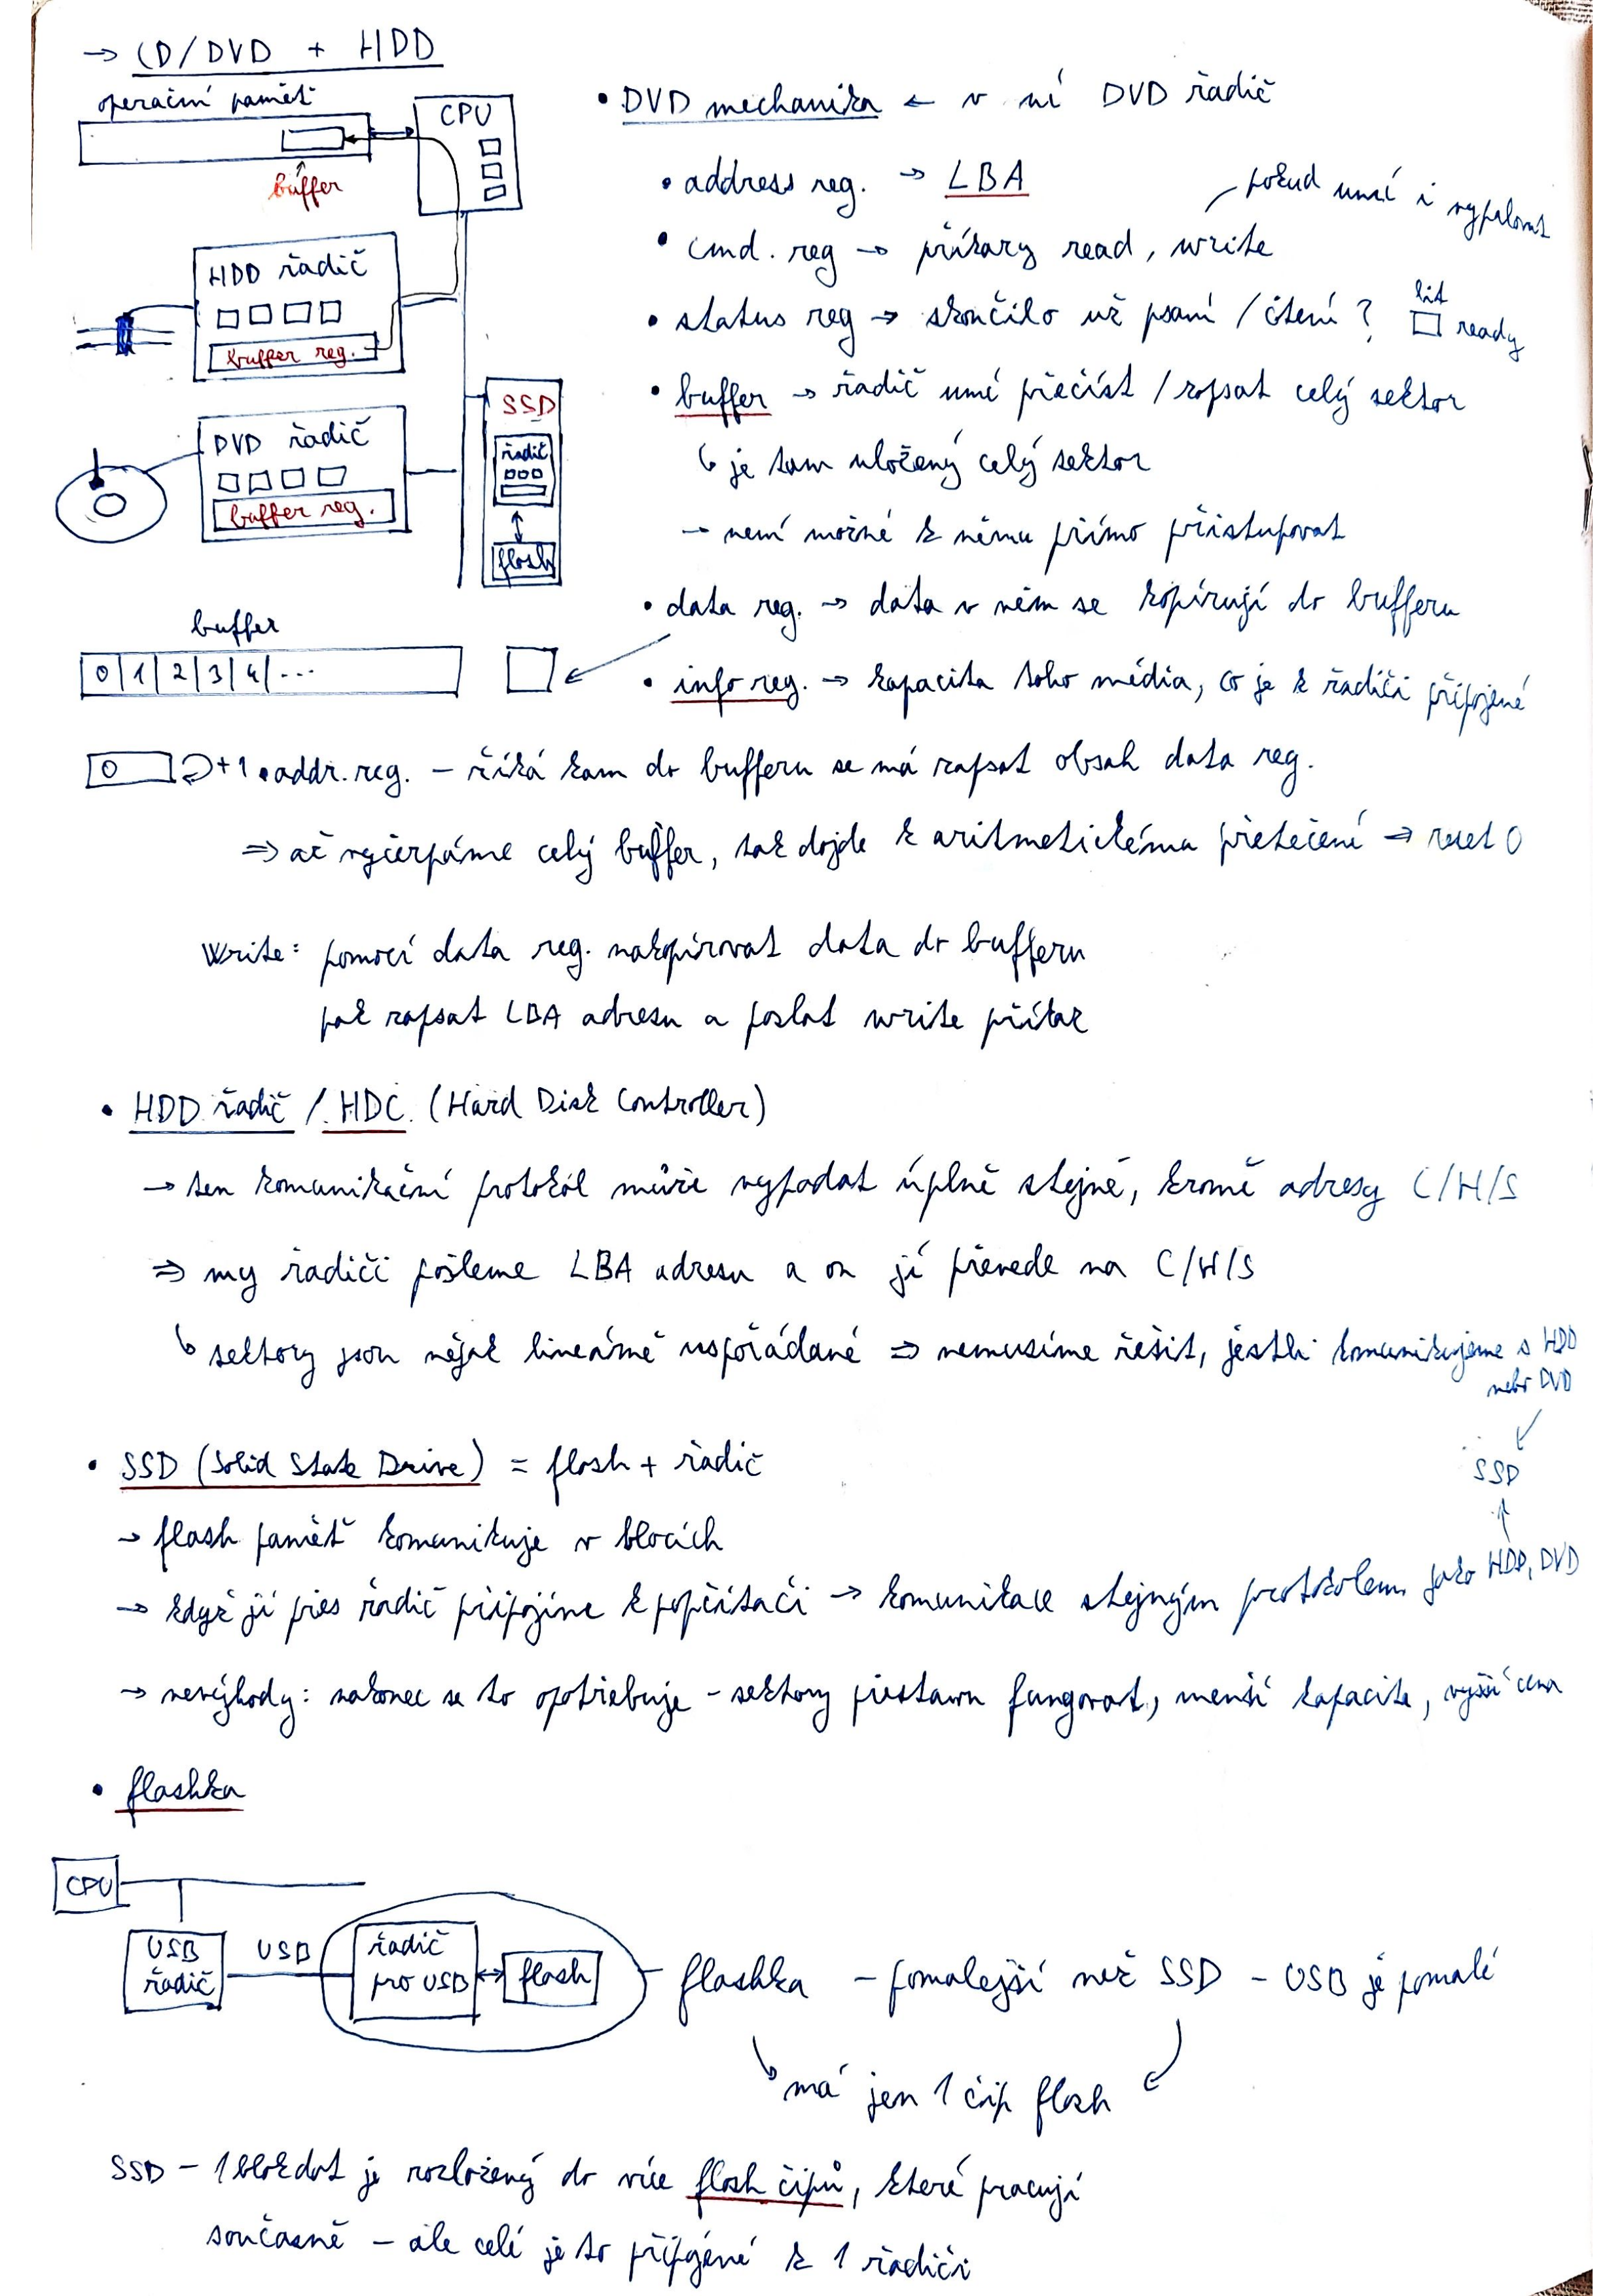 → CD/DVD + HDD
operační paměť
CPU
buffer
HDD řadič
buffer reg.
DVD řadič
buffer reg.
SSD
řadič
flash
• DVD mechanika ← v ní DVD řadič
• address reg. → LBA
pokud umí i vypalovat
• cmd. reg → příkazy read, write
• status reg → skončilo už psaní / čtení ? bit ready
• buffer → řadič umí přečíst / zapsat celý sektor
↳ je tam uložený celý sektor
→ není možné k němu přímo přistupovat
• data reg. → data v něm se kopírují do bufferu
buffer
0|1|2|3|4|...
• info reg. → kapacita toho média, co je k řadiči připojené
0 +1 • addr. reg. – říká kam do bufferu se má zapsat obsah data reg.
⇒ až vyčerpáme celý buffer, tak dojde k aritmetickému přetečení → reset 0
Write: pomocí data reg. nakopírovat data do bufferu
pak zapsat LBA adresu a poslat write příkaz
• HDD řadič / HDC (Hard Disk Controller)
→ ten komunikační protokol může vypadat úplně stejně, kromě adresy C/H/S
⇒ my řadiči pošleme LBA adresu a on jí převede na C/H/S
↳ sektory jsou nějak lineárně uspořádané ⇒ nemusíme řešit, jestli komunikujeme s HDD
nebo DVD
SSD
• SSD (Solid State Drive) = flash + řadič
→ flash paměť komunikuje v blocích
→ když jí přes řadič připojíme k počítači → komunikace stejným protokolem jako HDD, DVD
→ nevýhody: nakonec se to opotřebuje – sektory přestanou fungovat, menší kapacita, vyšší cena
• flashka
CPU
USB řadič
USB
řadič pro USB
flash
flashka – pomalejší než SSD – USB je pomalé
má jen 1 čip flash
SSD – 1 blok dat je rozložený do více flash čipů, které pracují
současně – ale celé je to připojené k 1 řadiči